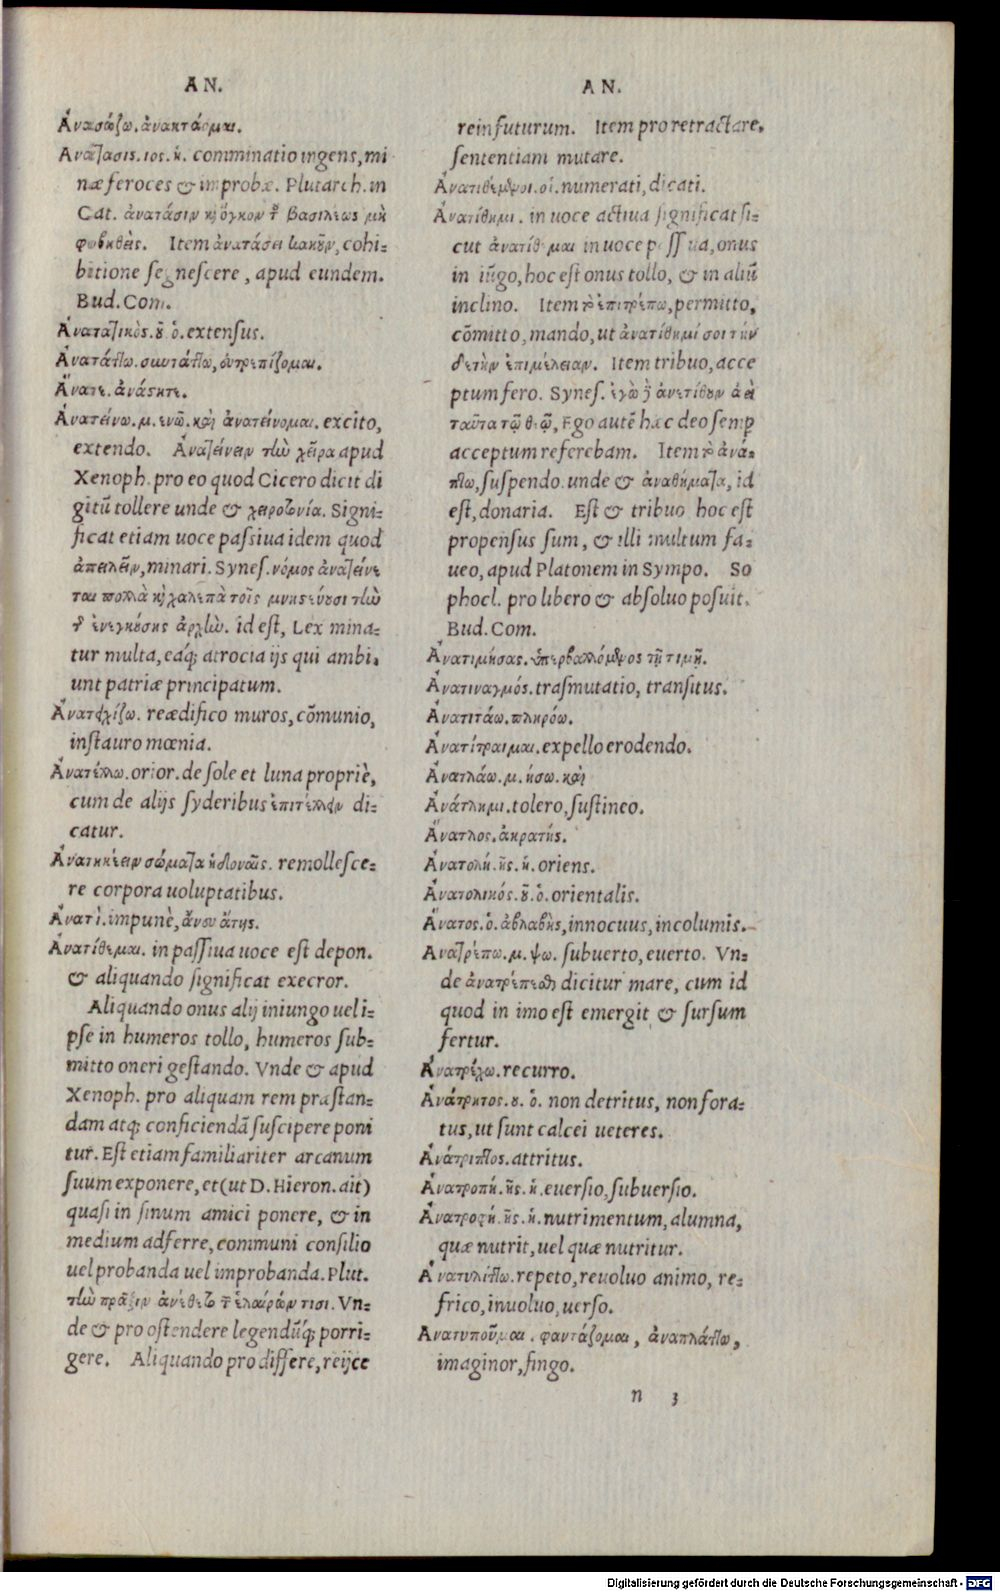 AN.
Ἀνασώζω. ἀνακτάομαι.
Ἀνάτασις. ιος. ἡ. comminatio ingens, mi
næ feroces & improbæ. Plutarch. in
Cat. ἀνατάσιν κỳ ὄγκον τ͂ βασιλέως μὴ
φοβηθεὶς. Item ἀνατάσει κακῶν, cohi-
bitione segnescere, apud eundem.
Bud. Com.
Ἀνατατικὸς. ȣ͂ ὁ. extensus.
Ἀνατάττω. συντάττω, εὐτρεπίζομαι.
Ἄνατε. ἀνάςητε.
Ἀνατείνω. μ. ενῶ. καὶ ἀνατείνομαι. excito,
extendo. Ἀνατείνειν τὴν χεῖρα apud
Xenoph. pro eo quod Cicero dicit di
gitũ tollere unde & χειροτονία. Signi-
ficat etiam uoce passiua idem quod
ἀπειλεῖν, minari. Synes. νόμος ἀνατείνε
ται πολλὰ κỳ χαλεπὰ τοῖς μνηςεύουσι τὴν
τ͂ ἐνεγκούσης ἀρχὴν. id est, Lex mina-
tur multa, eáq; atrocia ijs qui ambi-
unt patriæ principatum.
Ἀνατειχίζω. reædifico muros, cõmunio,
instauro mœnia.
Ἀνατέλλω. orior. de sole et luna propriè,
cum de alijs syderibus ἐπιτέλλειν di-
catur.
Ἀνατηκέειν σώματα ἡδοναῖς. remollesce-
re corpora uoluptatibus.
Ἀνατὶ. impunè, ἄνευ ἄτης.
Ἀνατίθεμαι. in passiua uoce est depon.
& aliquando significat execror.
Aliquando onus alij iniungo uel i-
pse in humeros tollo, humeros sub-
mitto oneri gestando. Vnde & apud
Xenoph. pro aliquam rem præstan-
dam atq; conficiendã suscipere poni
tur. Est etiam familiariter arcanum
suum exponere, et (ut D. Hieron. ait)
quasi in sinum amici ponere, & in
medium adferre, communi consilio
uel probanda uel improbanda. Plut.
τὴν πρᾶξιν ἀνέθετο τ͂ ἑταίρων τισι. Vn-
de & pro ostendere legendũq; porri-
gere. Aliquando pro differe, reijce
AN.
re in futurum. Item pro retractare,
sententiam mutare.
Ἀνατιθέμενοι. οἱ. numerati, dicati.
Ἀνατίθημι. in uoce actiua significat si-
cut ἀνατίθεμαι in uoce passiua, onus
in iũgo, hoc est onus tollo, & in aliũ
inclino. Item τὸ ἐπιτρέπω, permitto,
cõmitto, mando, ut ἀνατίθημί σοι τὴν
δὲ τὴν ἐπιμέλειαν. Item tribuo, acce
ptum fero. Synes. ἐγὼ ỹ ἀνετίθουν ἀεὶ
ταῦτα τῷ θεῷ, Ego autẽ hæc deo semp̱
acceptum referebam. Item τὸ ἀνά-
πτω, suspendo. unde & ἀναθήματα, id
est, donaria. Est & tribuo hoc est
propensus sum, & illi multum fa-
ueo, apud Platonem in Sympo. So
phocl. pro libero & absoluo posuit.
Bud. Com.
Ἀνατιμήσας. ὑπερβαλλόμενος τῇ τιμῇ.
Ἀνατιναγμός. trasmutatio, transitus.
Ἀνατιτάω. πληρόω.
Ἀνατίτραιμαι. expello erodendo.
Ἀνατλάω. μ. ήσω. καὶ
Ἀνάτλημι. tolero, sustineo.
Ἄνατλος. ἀκρατής.
Ἀνατολή. ῆς. ἡ. oriens.
Ἀνατολικός. ȣ͂. ὁ. orientalis.
Ἄνατος. ὁ. ἀβλαβὴς, innocuus, incolumis.
Ἀνατρέπω. μ. ψω. subuerto, euerto. Vn-
de ἀνατρέπεσθαι dicitur mare, cum id
quod in imo est emergit & sursum
fertur.
Ἀνατρέχω. recurro.
Ἀνάτρητος. ȣ. ὁ. non detritus, non fora-
tus, ut sunt calcei ueteres.
Ἀνάτριπτος. attritus.
Ἀνατροπή. ῆς. ἡ. euersio, subuersio.
Ἀνατροφή. ῆς. ἡ. nutrimentum, alumna,
quæ nutrit, uel quæ nutritur.
Ἀνατυλίττω. repeto, reuoluo animo, re-
frico, inuoluo, uerso.
Ἀνατυποῦμαι. φαντάζομαι, ἀναπλάττω,
imaginor, fingo.
n 3
Digitalisierung gefördert durch die Deutsche Forschungsgemeinschaft - DFG